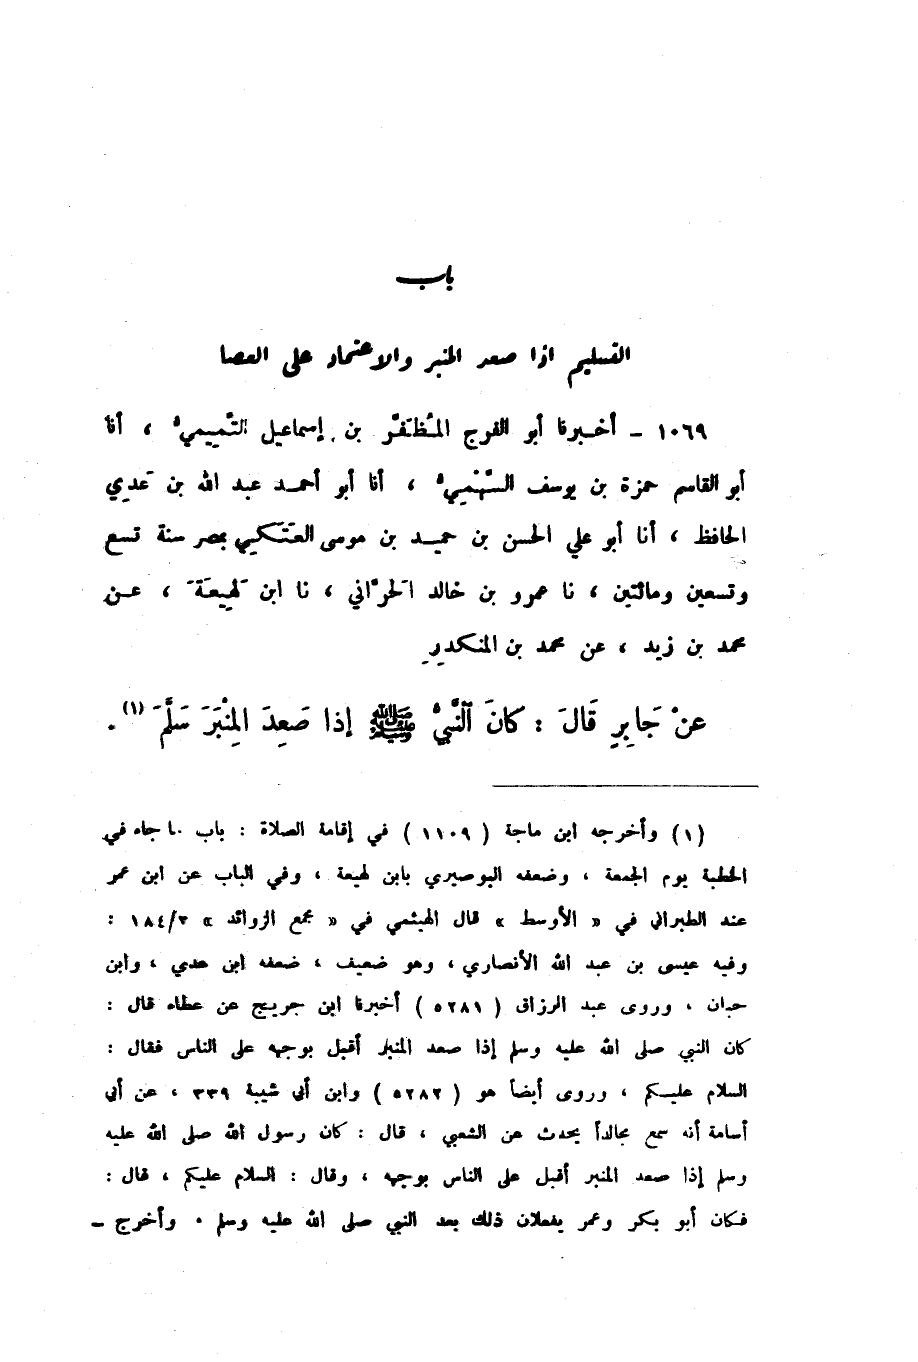 باب
التسليم إذا صعد المنبر والاعتماد على العصا
١٠٦٩ ـ أخبرنا أبو الفرج المُظَفَّرُ بن إسماعيل التَّميميُّ ، أنا
أبو القاسم حمزة بن يوسف السَّهْميُّ ، أنا أبو أحمد عبد الله بن عَدِي
الحافظ ، أنا أبو علي الحسن بن حميد بن موسى العَتَكيِي بمصر سنة تسع
وتسعين ومائتين ، نا عمرو بن خالد الحَرَّاني ، نا ابن لَهِيعَةَ ، عن
محمد بن زيد ، عن محمد بن المنكدرِ
عنْ جَابِرٍ قَالَ : كَانَ النَّبيُّ ﷺ إذا صَعِدَ المِنْبَرَ سَلَّمَ (١) .
(١) وأخرجه ابن ماجة ( ١١٠٩ ) في إقامة الصلاة : باب ما جاء في
الخطبة يوم الجمعة ، وضعفه البوصيري بابن لهيعة ، وفي الباب عن ابن عمر
عند الطبراني في « الأوسط » قال الهيثمي في « مجمع الزوائد » ١٨٤/٢ :
وفيه عيسى بن عبد الله الأنصاري ، وهو ضعيف ، ضعفه ابن عدي ، وابن
حبان ، وروى عبد الرزاق ( ٥٢٨١ ) أخبرنا ابن جريج عن عطاء قال :
كان النبي صلى الله عليه وسلم إذا صعد المنبر أقبل بوجهه على الناس فقال :
السلام عليكم ، وروى أيضاً هو ( ٥٢٨٢ ) وابن أبي شيبة ٣٣٩ ، عن أبي
أسامة أنه سمع مجالداً يحدث عن الشعبي ، قال : كان رسول الله صلى الله عليه
وسلم إذا صعد المنبر أقبل على الناس بوجهه ، وقال : السلام عليكم ، قال :
فكان أبو بكر وعمر يفعلان ذلك بعد النبي صلى الله عليه وسلم . وأخرج ـ